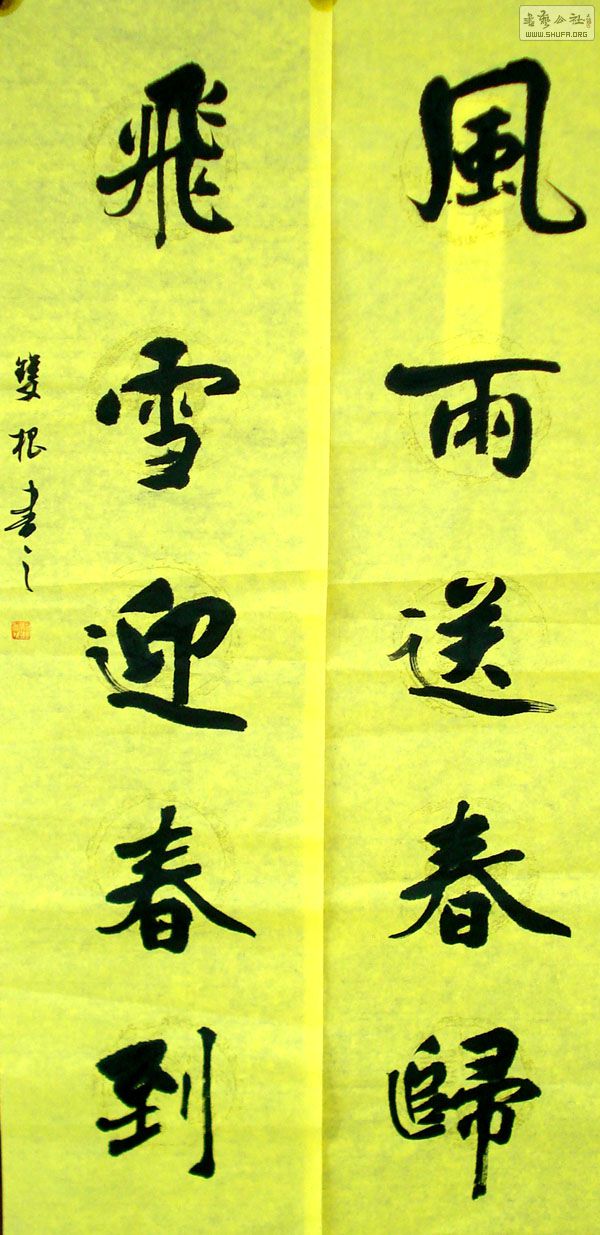 風雨送春歸
飛雪迎春到
雙根書之
书艺公社
WWW.SHUFA.ORG